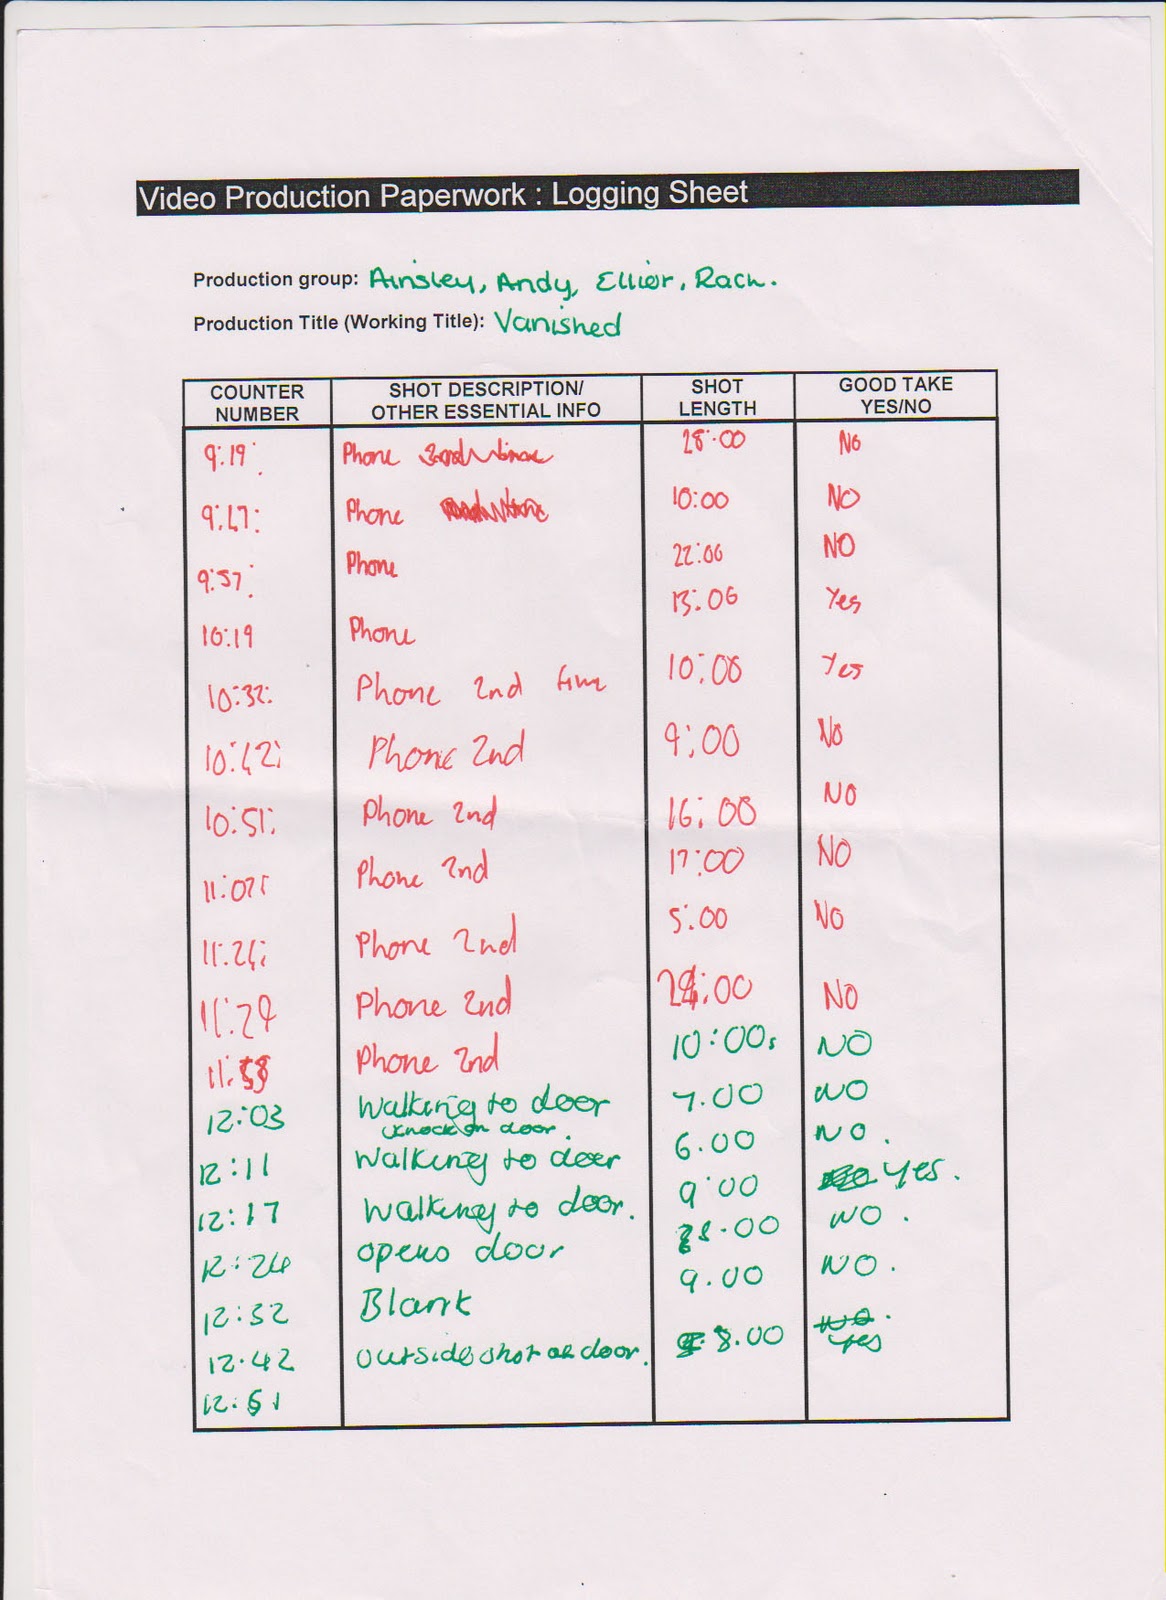 Video Production Paperwork : Logging Sheet
Production group: Ainsley, Andy, Elliot, Rach.
Production Title (Working Title): Vanished
COUNTER NUMBER SHOT DESCRIPTION/ OTHER ESSENTIAL INFO SHOT LENGTH GOOD TAKE YES/NO
9:19: Phone 28:00 No
9:47: Phone 10:00 NO
9:57: Phone 22:00 NO
10:19 Phone 13:00 Yes
10:32: Phone 2nd time 10:00 Yes
10:42: Phone 2nd 9:00 No
10:51: Phone 2nd 16:00 NO
11:07: Phone 2nd 17:00 NO
11:24: Phone 2nd 5:00 NO
11:29 Phone 2nd 24:00 NO
11:53 Phone 2nd 10:00s NO
12:03 walking to door 7.00 NO
knock on door.
12:11 walking to door 6.00 NO.
12:17 walking to door. 9:00 yes.
12:24 opens door 8.00 NO.
12:32 Blank 9.00 NO.
12.42 outside shot of door. 8.00 yes
12:51